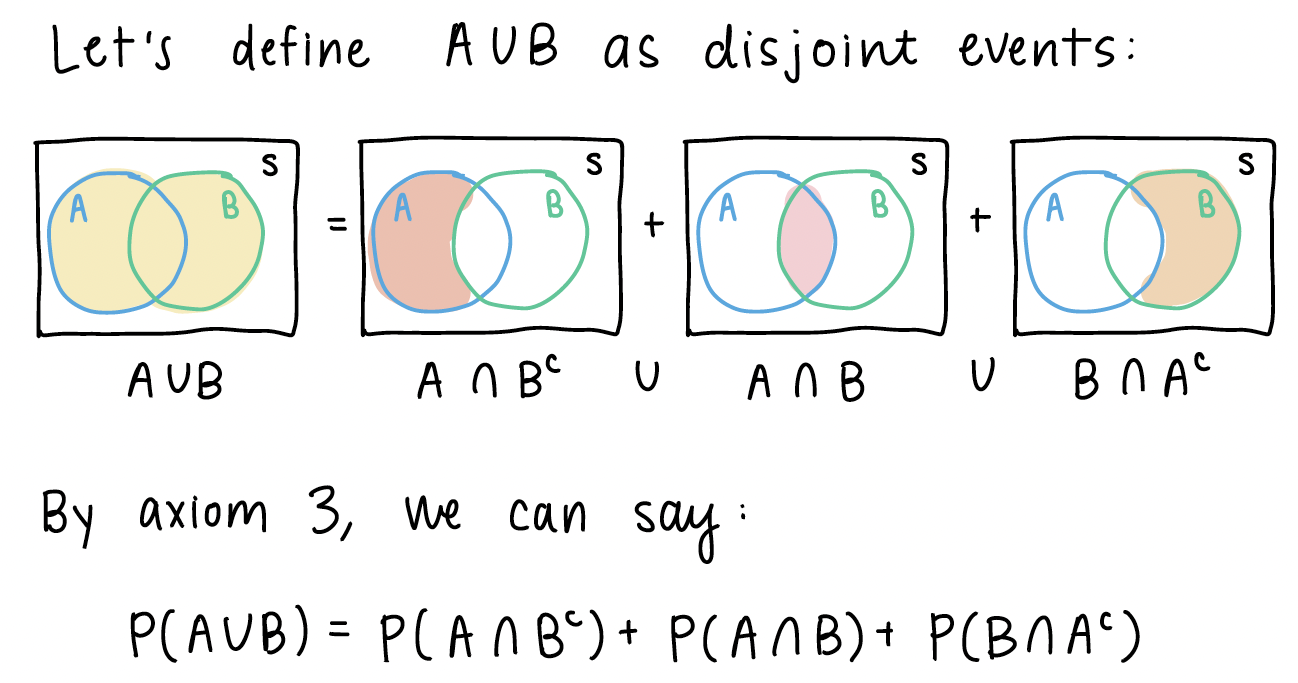 Let's define A∪B as disjoint events:
S A B = S A B + S A B + S A B
A∪B A ∩ Bᶜ ∪ A ∩ B ∪ B ∩ Aᶜ
By axiom 3, we can say:
P(A∪B) = P(A ∩ Bᶜ) + P(A ∩ B) + P(B ∩ Aᶜ)